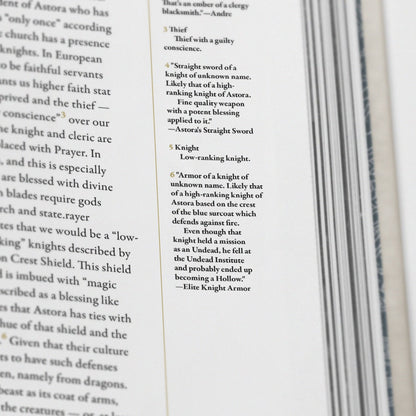 dent of Astora who has
"only once" according
church has a presence
knights. In European
to be faithful servants
nts us higher faith stat
prived and the thief —
conscience"3 over our
he knight and cleric are
placed with Prayer. In
, and this is especially
are blessed with divine
n blades require gods
rch and state.rayer
tes that we would be a "low-
king" knights described by
on Crest Shield. This shield
d is imbued with "magic
escribed as a blessing like
es that Astora has ties with
hue of that shield and the
.6 Given that their culture
ts to have such defenses
en, namely from dragons.
beast as its coat of arms,
the creatures — or, at least
That's an ember of a clergy
blacksmith."—Andre
3 Thief
Thief with a guilty
conscience.
4 "Straight sword of a
knight of unknown name.
Likely that of a high-
ranking knight of Astora.
Fine quality weapon
with a potent blessing
applied to it."
—Astora's Straight Sword
5 Knight
Low-ranking knight.
6 "Armor of a knight of
unknown name. Likely that
of a high-ranking knight of
Astora based on the crest
of the blue surcoat which
defends against fire.
Even though that
knight held a mission
as an Undead, he fell at
the Undead Institute
and probably ended up
becoming a Hollow."
—Elite Knight Armor